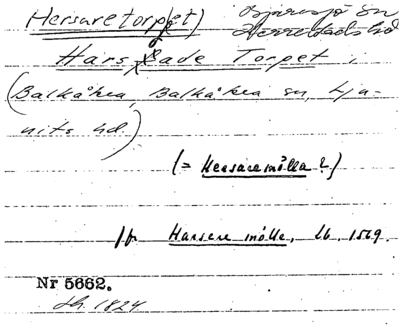 Hersuretorp(et)
Bjäresjö sn
Herrestads hd
Hars, Lade Torpet,
(Balkåkra, Balkåkra sn, Lju-
nits hd.)
(= Kersaremölla?)
jfr Harsere mölle, Lb, 1569.
Nr 5662.
1824